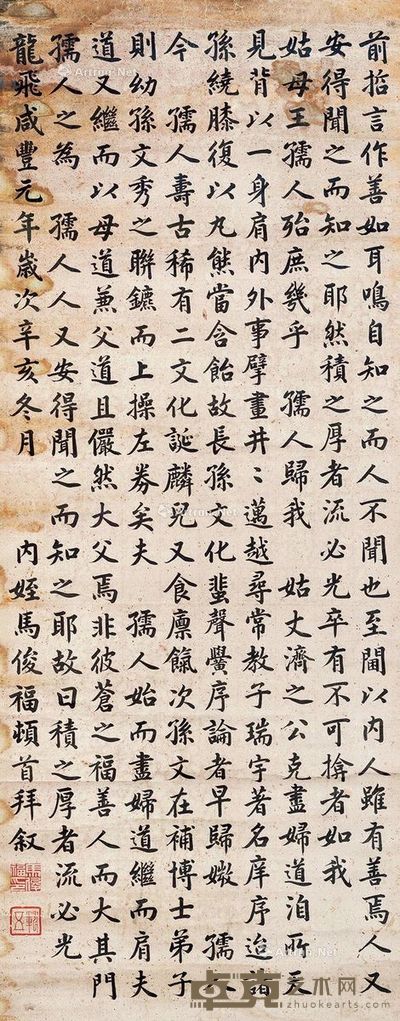 前哲言作善如耳鳴自知之而人不聞也至閫以内人雖有善焉人又
安得聞之而知之耶然積之厚者流必光卒有不可揜者如我
姑母王孺人殆庶幾乎 孺人歸我 姑丈濟之公克盡婦道洎所天
見背以一身肩内外事擘畫井〻邁越尋常教子瑞宇著名庠序迨諸
孫繞膝復以丸熊當含飴故長孫文化蜚聲黌序論者早歸媺 孺人
今 孺人壽古稀有二文化誕麟兒又食廩餼次孫文在補博士弟子
則幼孫文秀之聯鑣而上操左券矣夫 孺人始而盡婦道繼而肩夫
道又繼而以母道兼父道且儼然大父焉非彼蒼之福善人而大其門
孺人之為 孺人人又安得聞之而知之耶故曰積之厚者流必光
龍飛咸豐元年歲次辛亥冬月 内姪馬俊福頓首拜叙
Artron.Net
美术网
zhuokearts.com